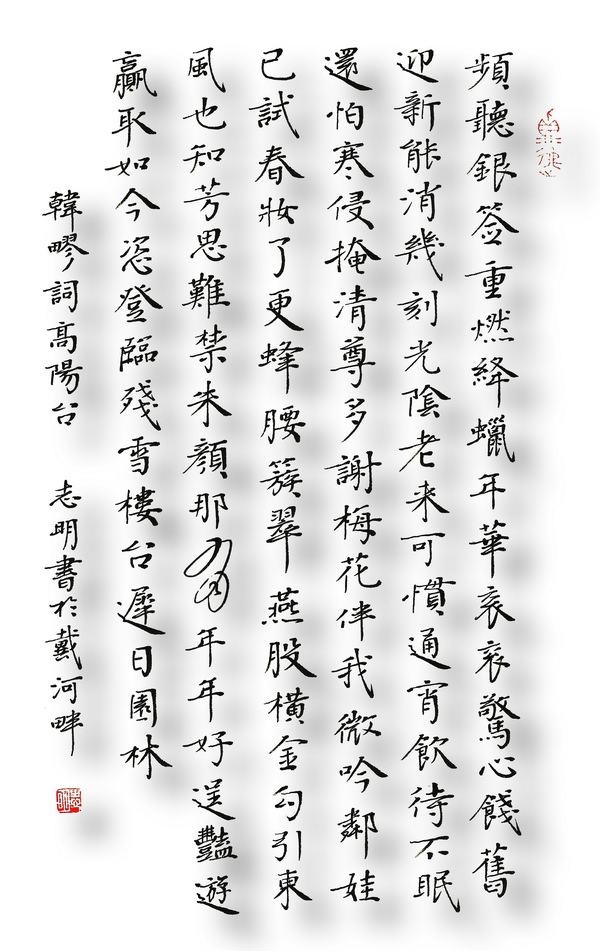 頻聽銀签重燃絳蠟年華衮衮驚心餞舊
迎新能消幾刻光陰老来可慣通宵飲待不眠
還怕寒侵掩清尊多謝梅花伴我微吟鄰娃
已試春妝了更蜂腰簇翠燕股横金勾引東
風也知芳思難禁朱顔那有年年好逞豔遊
贏取如今恣登臨殘雪樓台遲日園林
韓疁詞高陽台 志明書於戴河畔